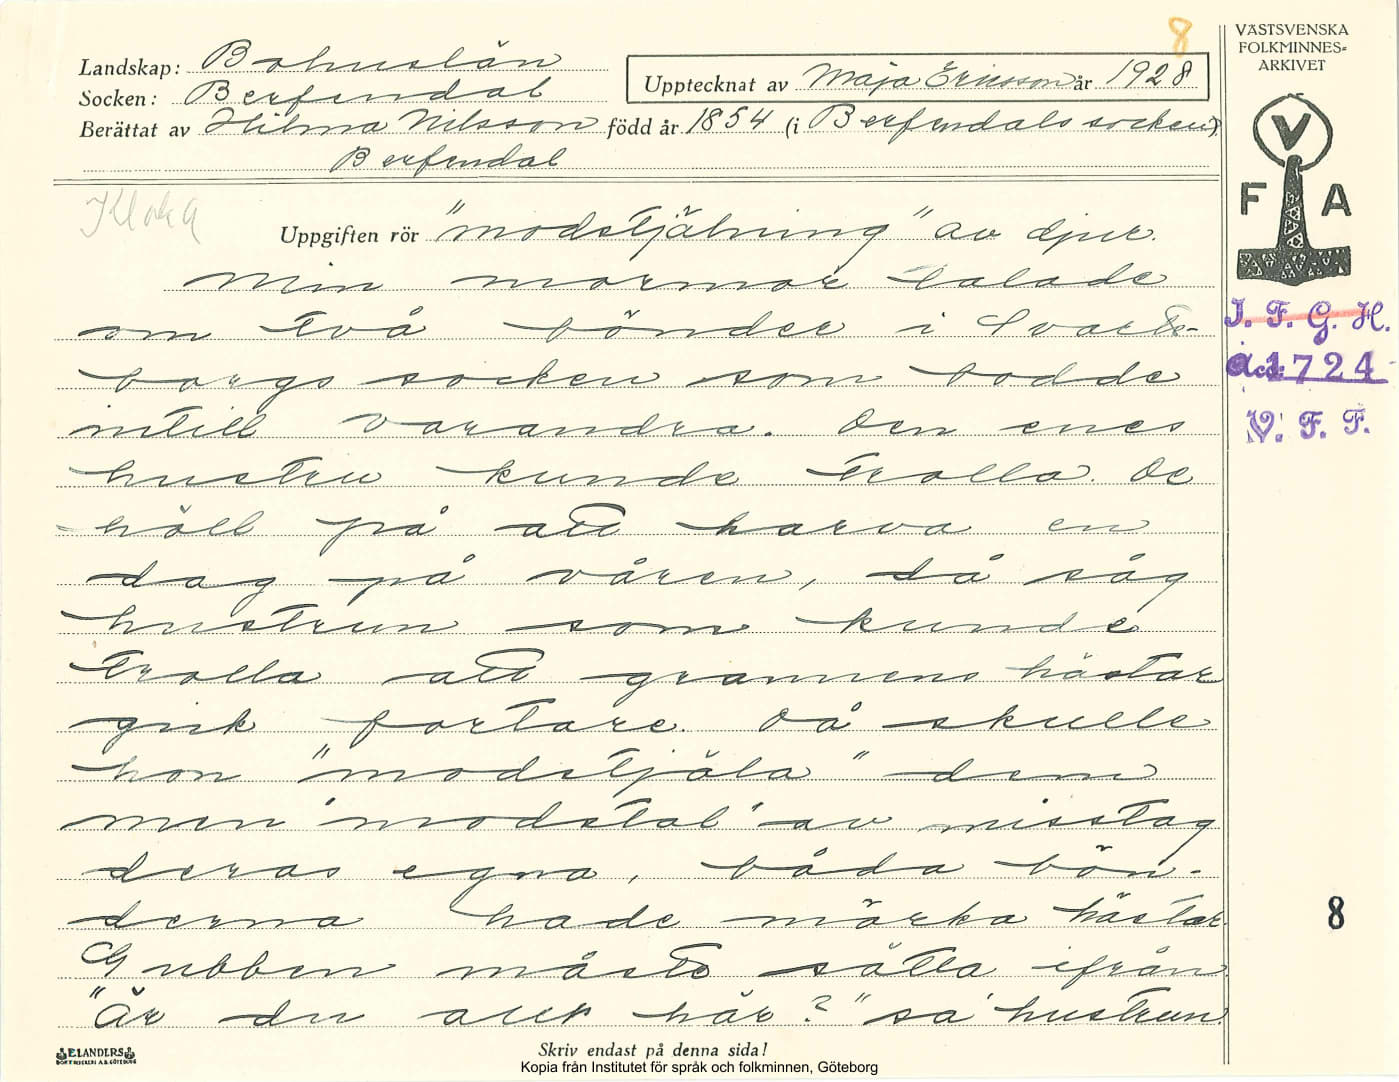 8
VÄSTSVENSKA
FOLKMINNES=
ARKIVET
Landskap: Bohuslän
Socken: Berfendal
Upptecknat av Maja Ericsson år 1928
Berättat av Hilma Nilsson född år 1854 (i Berfendals socken)
Berfendal
V
F A
Kloka
Uppgiften rör "modstjälning" av djur.
Min mormor talade
om två bönder i Svarte-
borgs socken som bodde
intill varandra. Den enes
hustru kunde trolla. De
höll på att harva en
dag på våren, då såg
hustrun som kunde
trolla att grannens hästar
gick fortare. Då skulle
hon "modstjäla" dem
men "modstal" av misstag
deras egna, båda bön-
derna hade mörka hästar.
Gubben måste sätta ifrån.
"Är du allt här?" sa' hustrun.
I. F. G. H.
Acc: 1724
V. F. F.
8
ELANDERS
Skriv endast på denna sida!
Kopia från Institutet för språk och folkminnen, Göteborg